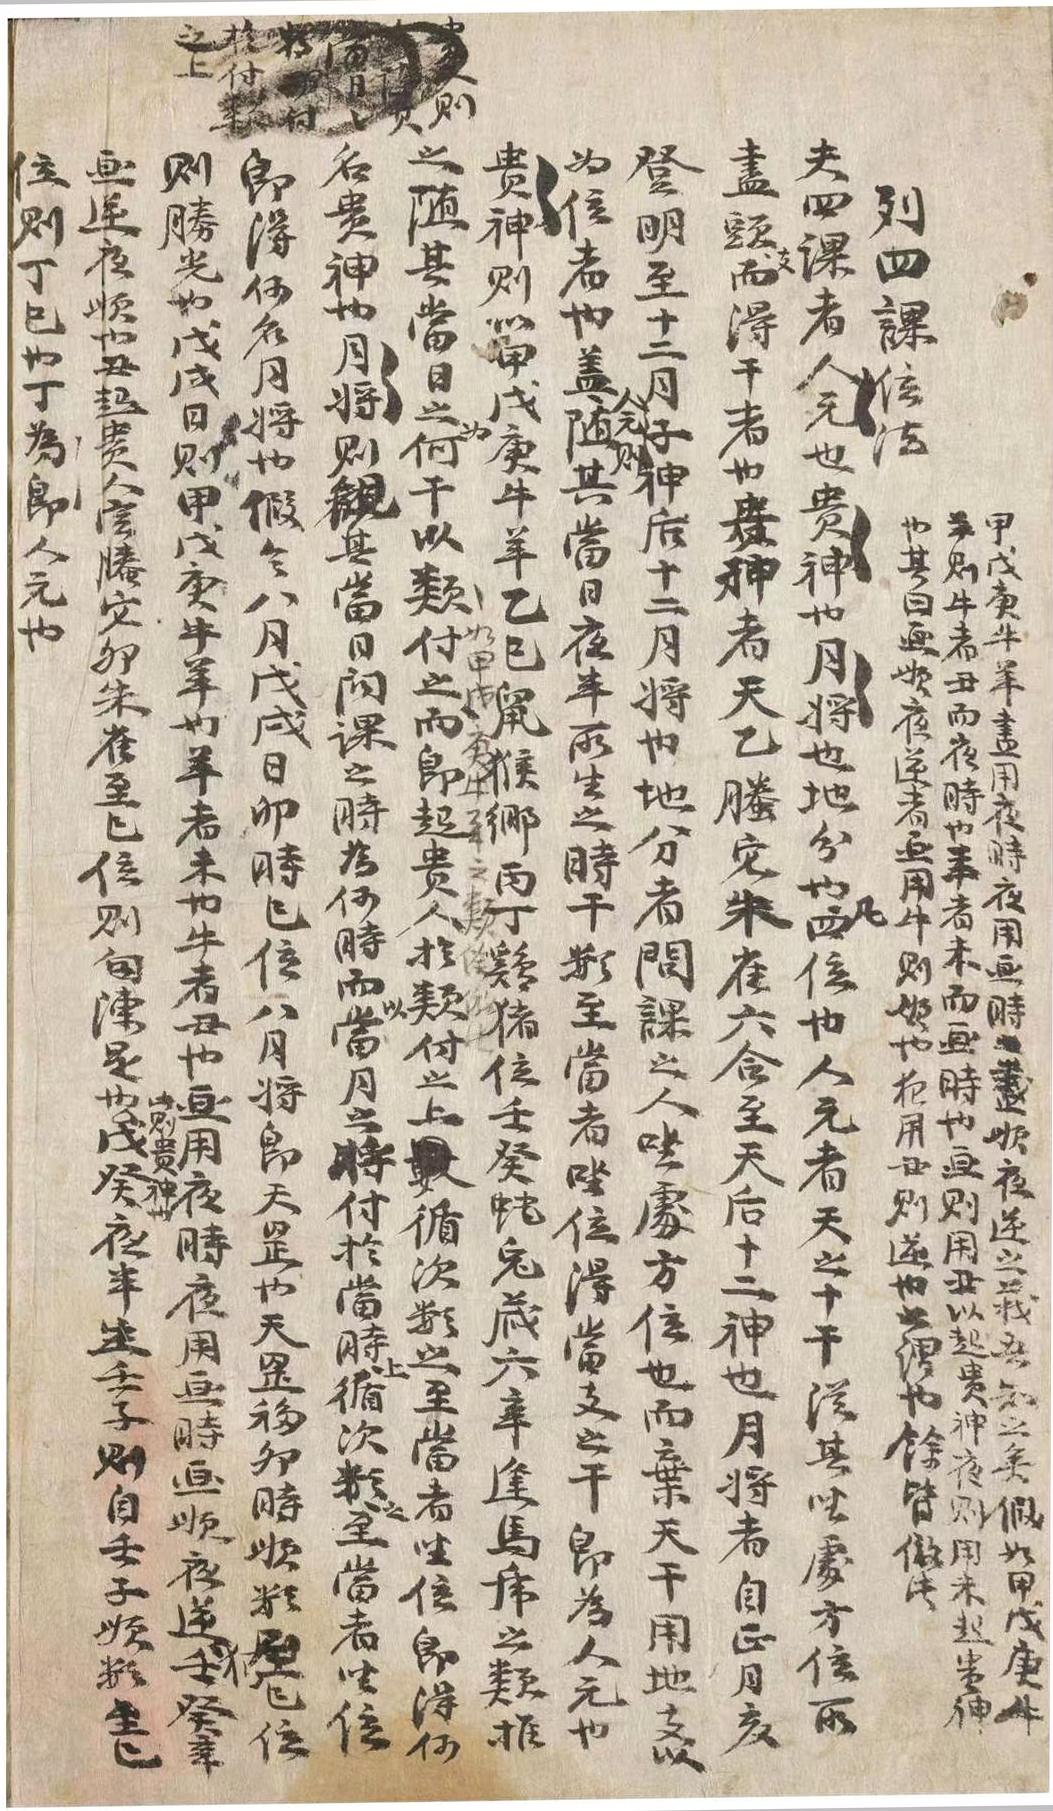 列四課位法
甲戊庚牛羊晝用夜時夜用晝時晝順夜逆之義吾知之矣假如甲戊庚牛
羊則牛者丑而夜時也羊者未而晝時也晝則用丑以起貴神夜則用未起貴神
也其曰晝順夜逆者晝用牛則順也夜用丑則逆也之謂也餘皆倣此
夫四課者人元也貴神也月將也地分也凡四位也人元者天之十干從其坐處方位所
盡頭支而得干者也貴神者天乙螣蛇朱雀六合至天后十二神也月將者自正月亥
登明至十二月子神后十二月將也地分者問課之人坐處方位也而棄天干用地支以
為位者也盖人元則随其當日夜半所生之時干數至當者坐位得當支之干即為人元也
貴神則以甲戊庚牛羊乙巳鼠猴鄉丙丁鷄猪位壬癸蛇兎藏六辛逢馬虎之類推
之随其當日之為何干以類付之如甲戊庚牛羊之類而即起貴人於類付之上循次數之至當者坐位即得何
名貴神也月將則觀其當日問課之時為何時而以當月之將付於當時上循次數之至當者坐位
即得何名月將也假令八月戊戌日卯時巳位八月將即天罡也天罡移卯時順數至巳位
則勝光也戊戌日則甲戊庚牛羊也羊者未也牛者丑也晝用夜時夜用晝時晝順夜逆壬癸羊
晝逆夜順也丑起貴人寅螣蛇卯朱雀至巳位則句陳是也此則貴神也戊癸夜半生壬子則自壬子順數至巳
位則丁巳也丁為即人元也
貴人則
之上